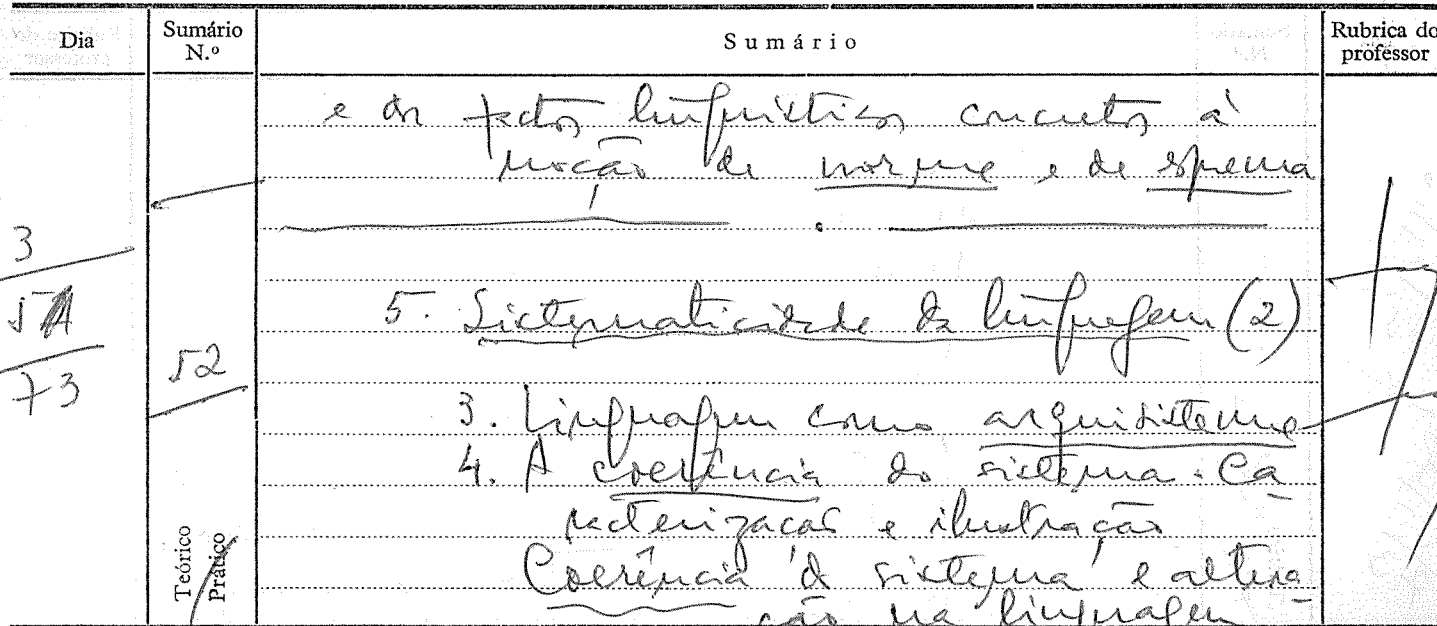 Dia
Sumário N.º
Sumário
Rubrica do professor
e dos factos linguísticos concretos à
noção de norma e de sistema
3
5
73
52
5. Sistematicidade da linguagem (2)
3. Linguagem como arquisistema
4. A coerência do sistema. Ca
racterização e ilustração
Coerência do sistema e altera
ção na linguagem
Teórico
Prático